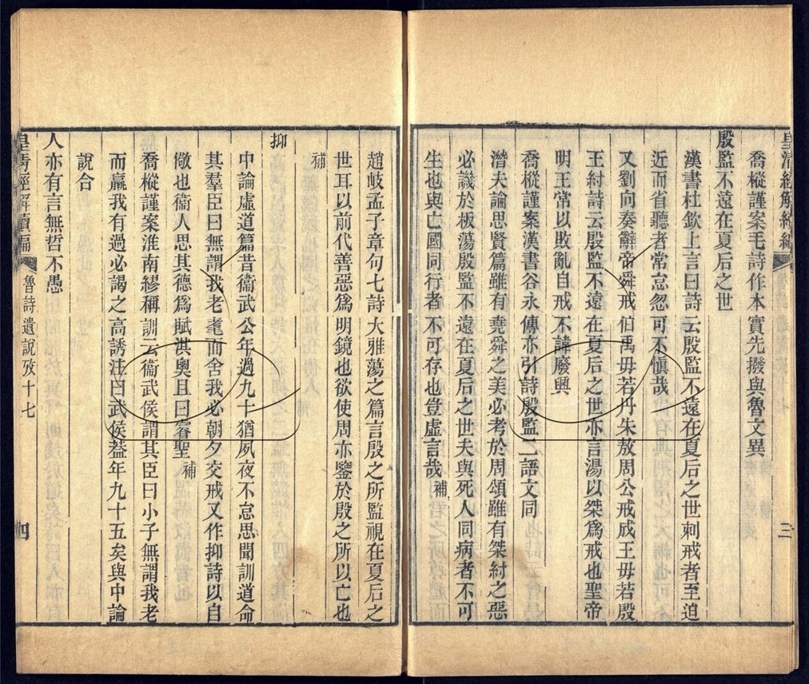 皇清經解續編
三
喬樅謹案毛詩作本實先撥與魯文異
殷監不遠在夏后之世
漢書杜欽上言曰詩云殷監不遠在夏后之世刺戒者至迫
近而省聽者常怠忽可不慎哉
又劉向奏辭帝舜戒伯禹毋若丹朱敖周公戒成王毋若殷
王紂詩云殷監不遠在夏后之世亦言湯以桀為戒也聖帝
明王常以敗亂自戒不諱廢興
喬樅謹案漢書谷永傳亦引詩殷監二語文同
潛夫論思賢篇雖有堯舜之美必考於周頌雖有桀紂之惡
必譏於板蕩殷監不遠在夏后之世夫與死人同病者不可
生也與亡國同行者不可存也豈虛言哉補
趙岐孟子章句七詩大雅蕩之篇言殷之所監視在夏后之
世耳以前代善惡為明鏡也欲使周亦鑒於殷之所以亡也
補
抑
中論虛道篇昔衞武公年過九十猶夙夜不怠思聞訓道命
其羣臣曰無謂我老耄而舍我必朝夕交戒又作抑詩以自
儆也衞人思其德為賦淇奧且曰睿聖補
喬樅謹案淮南繆稱訓云衞武侯謂其臣曰小子無謂我老
而羸我有過必謁之高誘注曰武侯葢年九十五矣與中論
說合
人亦有言無哲不愚
皇清經解續編
魯詩遺說攷十七
四